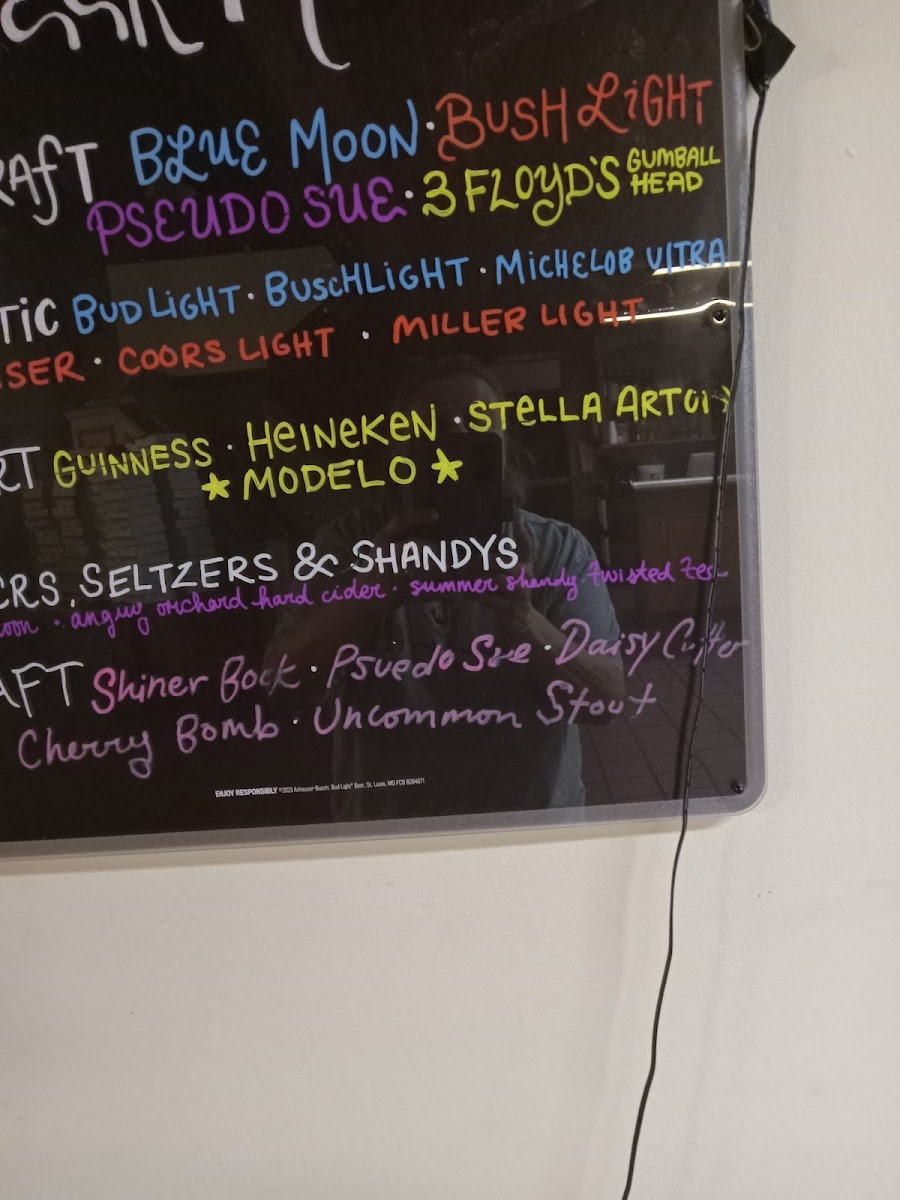 RAfT BLUE MOON · BUSH LiGHT
PSEUDO SUE · 3 FLOYD'S GUMBALL HEAD
TiC BUD LIGHT · BUSCHLIGHT · MICHELOB ULTRA
ISER · COORS LIGHT · MILLER LIGHT
RT GUINNESS · HEINEKEN · STELLA ARTOIS
★ MODELO ★
ERS, SELTZERS & SHANDYS
oon · angry orchard hard cider · summer shandy · twisted Tea
AFT Shiner Bock · Psuedo Sue · Daisy Cutter
Cherry Bomb · Uncommon Stout
ENJOY RESPONSIBLY ©2023 Anheuser-Busch, Bud Light® Beer, St. Louis, MO